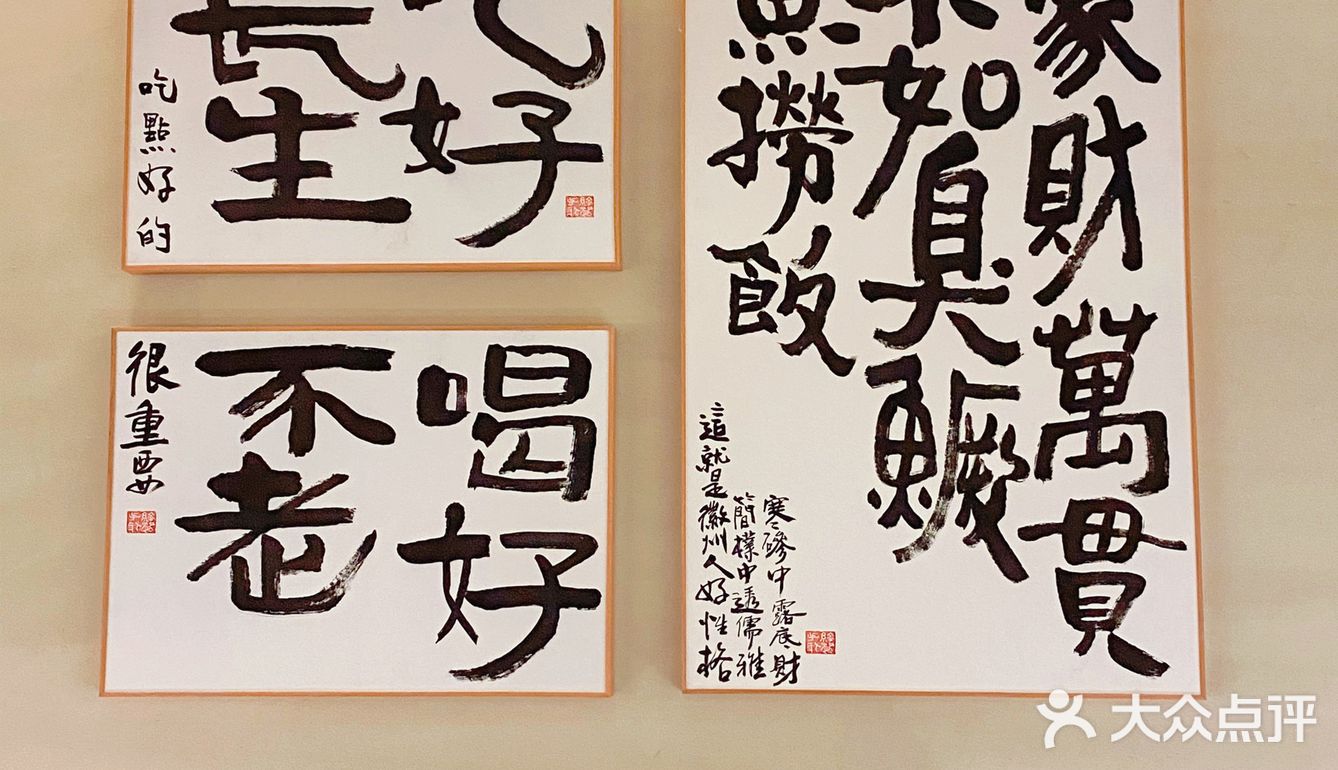 吃好
長生
吃點好的
喝好
不老
很重要
家財萬貫
不如臭鱖
魚撈飯
寒磣中露底財
簡樸中透儒雅
這就是徽州人好性格
大众点评